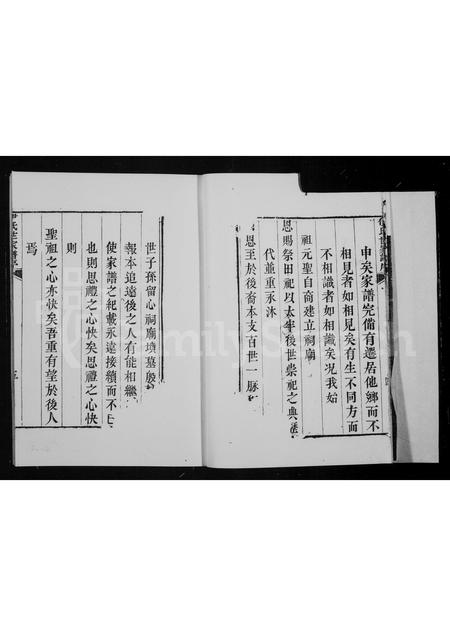 申矣家譜完備有遷居他鄉而不
相見者如相見矣有生不同方而
不相識者如相識矣况我始
祖元聖自商建立祠廟
恩賜祭田祀以太牢後世崇祀之典歷
代並重永沐
恩至於後裔本支百世一脈
世子孫留心祠廟墳墓殷
報本追遠後之人有能相繼
使家譜之紀載永遠接續而不
也則思禮之心快矣思禮之心快
則
聖祖之心亦快矣吾重有望於後人
焉
氏世家譜序
五
FamilySearch